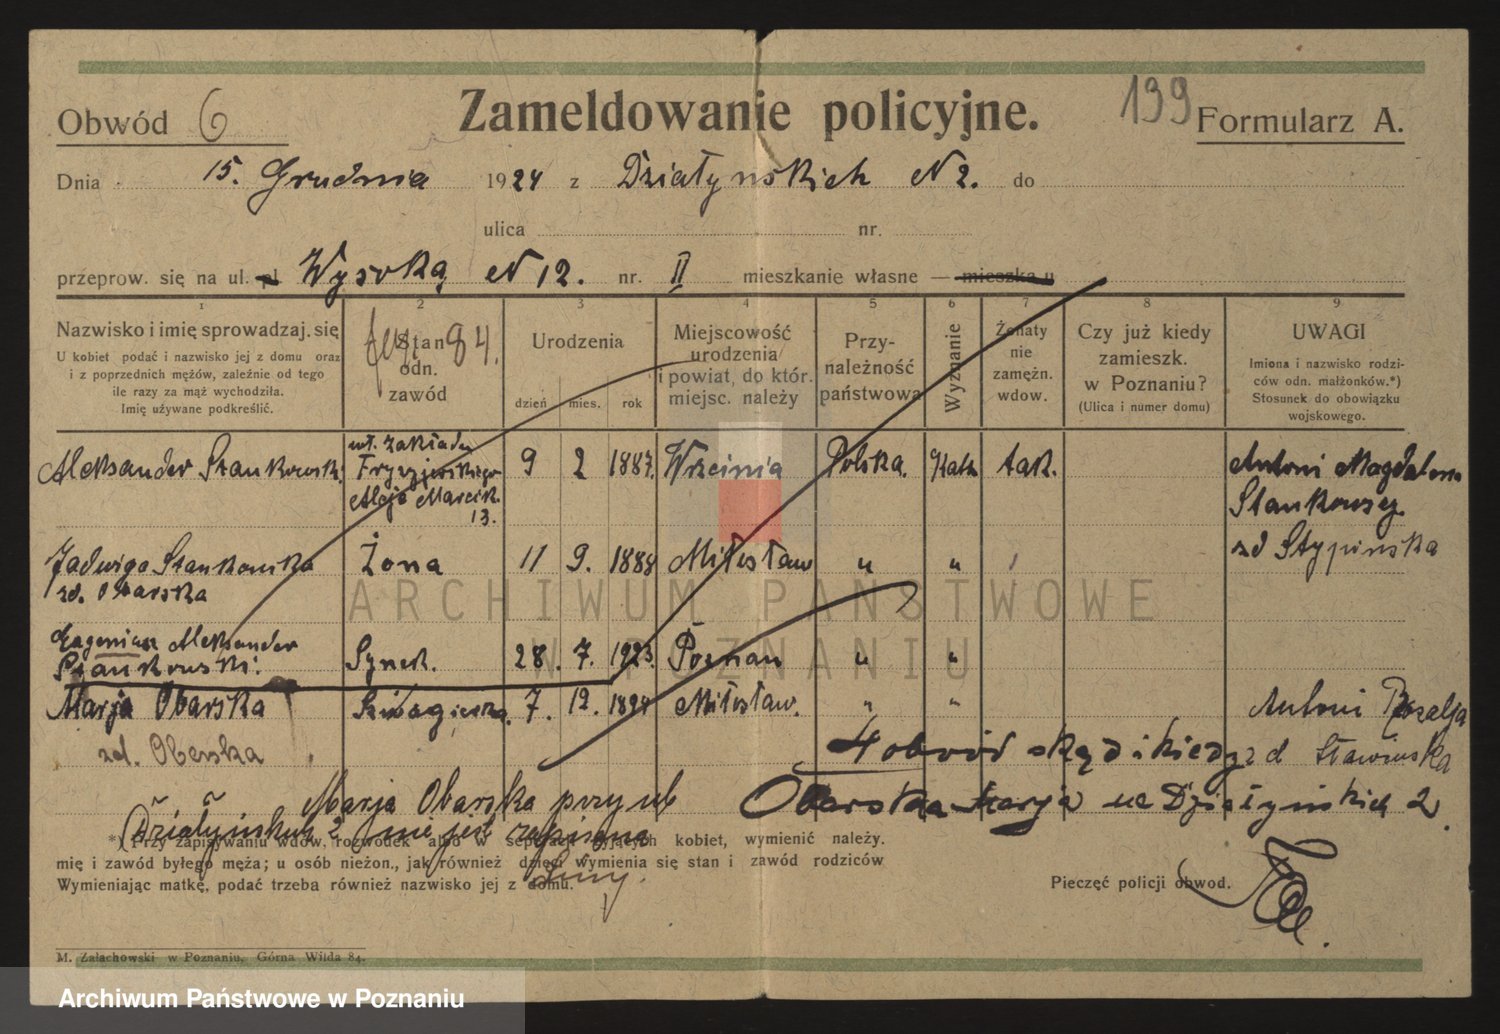 Obwód 6
Zameldowanie policyjne.
139
Formularz A.
Dnia 15. Grudnia 1924 z Działyńskich N 2. do
ulica nr.
przeprow. się na ul. Wysoką N 12. nr. II mieszkanie własne —
1 2 3 4 5 6 7 8 9
Nazwisko i imię sprowadzaj. się
U kobiet podać i nazwisko jej z domu oraz
i z poprzednich mężów, zaleźnie od tego
ile razy za mąż wychodziła.
Imię używane podkreślić.
Stan
odn.
zawód
84.
Urodzenia
dzień mies. rok
Miejscowość
urodzenia
i powiat, do któr.
miejsc. należy
Przy-
należność
państwowa
Wyznanie
Żonaty
nie
zamężn.
wdow.
Czy już kiedy
zamieszk.
w Poznaniu?
(Ulica i numer domu)
UWAGI
Imiona i nazwisko rodzi-
ców odn. małżonków.*)
Stosunek do obowiązku
wojskowego.
Aleksander Stankowski
wł. zakładu
Fryzjerskiego
Aleje Marcink.
13.
9 2 1887. Września Polska. Kath. tak.
Antoni Magdalena
Stankowscy
zd Stypińska
Jadwiga Stankowska
zd. Obarska
Żona 11 9. 1884 Miłosław " "
Eugeniusz Aleksander
Stankowski.
Synek. 28. 7. 1923. Poznań " "
Marja Obarska Szwagierka. 7. 12. 1894 Miłosław. " " Antoni Rozalja
zd. Oberska
4 obwód skąd i kiedy zd Stawińska
Marja Obarska przy ul
Działyńskich 2 nie jest zapisana
Obarska Marja ul Działyńskich 2.
*) Przy zapisywaniu wdów, rozwódek albo w seperacji żyjących kobiet, wymienić należy.
mię i zawód byłego męża; u osób nieżon., jak również dzieci wymienia się stan i zawód rodziców
Wymieniając matkę, podać trzeba również nazwisko jej z domu.
Pieczęć policji obwod.
M. Załachowski w Poznaniu, Górna Wilda 84.
ARCHIWUM PAŃSTWOWE
W POZNANIU
Archiwum Państwowe w Poznaniu